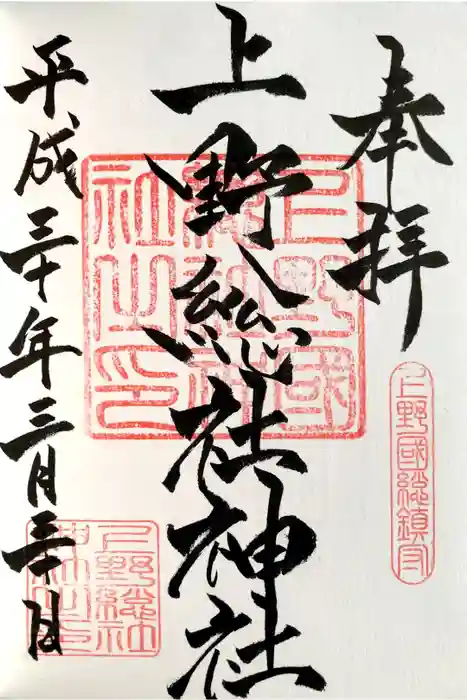 奉拝
上野國総鎮守
上野総社神社
上野國総社神社之印
平成三十年三月三十日
上野総社神社之印